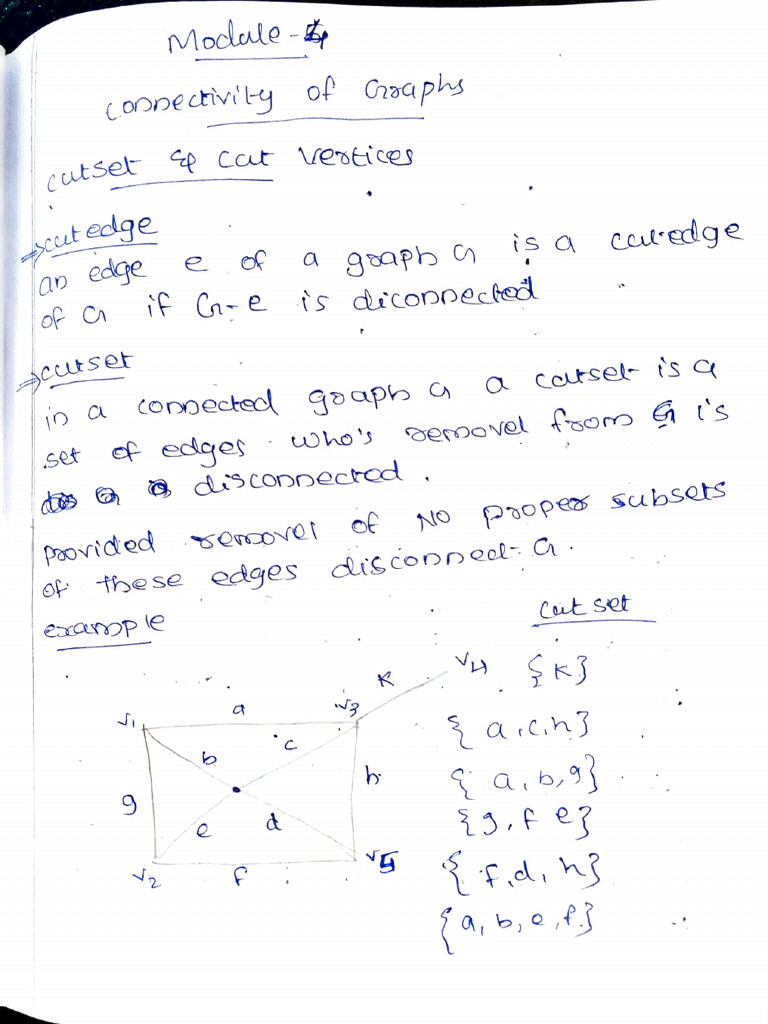 Module-4
connectivity of Graphs
cutset & cut vertices
⇒cut edge
an edge e of a graph G is a cut-edge
of G if G-e is diconnected
⇒cutset
in a connected graph G a cutset is a
set of edges who's removel from G is
disconnected.
provided removel of NO proper subsets
of these edges disconnect G.
example
cut set
K v4 {K}
v1 a v3
{a,c,h}
b c
{a,b,g}
g h
{g,f e}
e d
v2 f v5
{f,d,h}
{a,b,e,f}